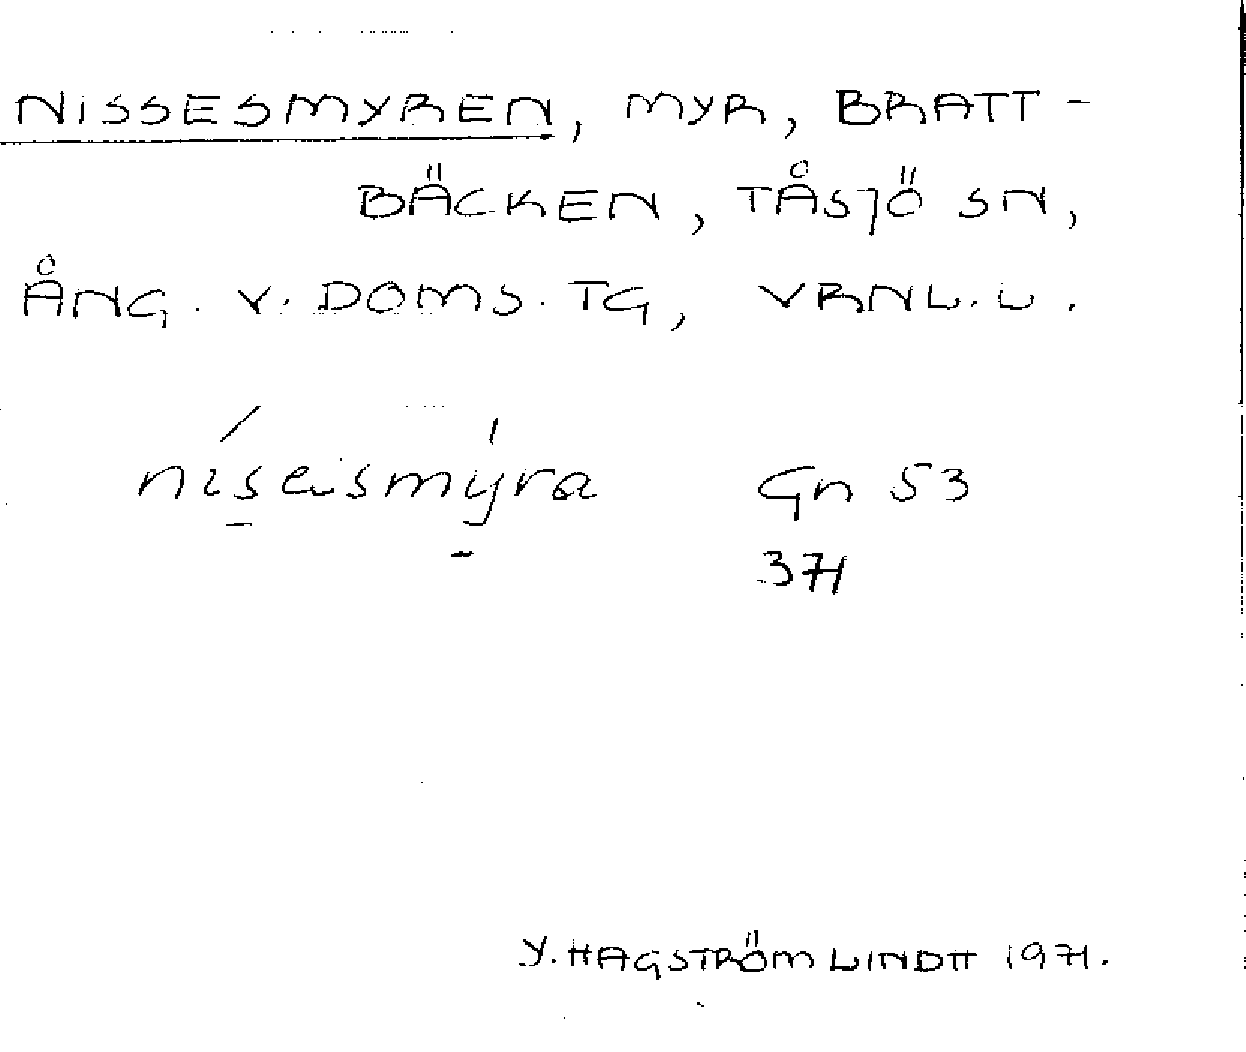 NISSESMYREN, MYR, BRATT-
BÄCKEN, TÅSJÖ SN,
ÅNG. V. DOMS. TG, VRNL. L.
níseismýra Gn 53
371
Y. HAGSTRÖM LINDH 1971.